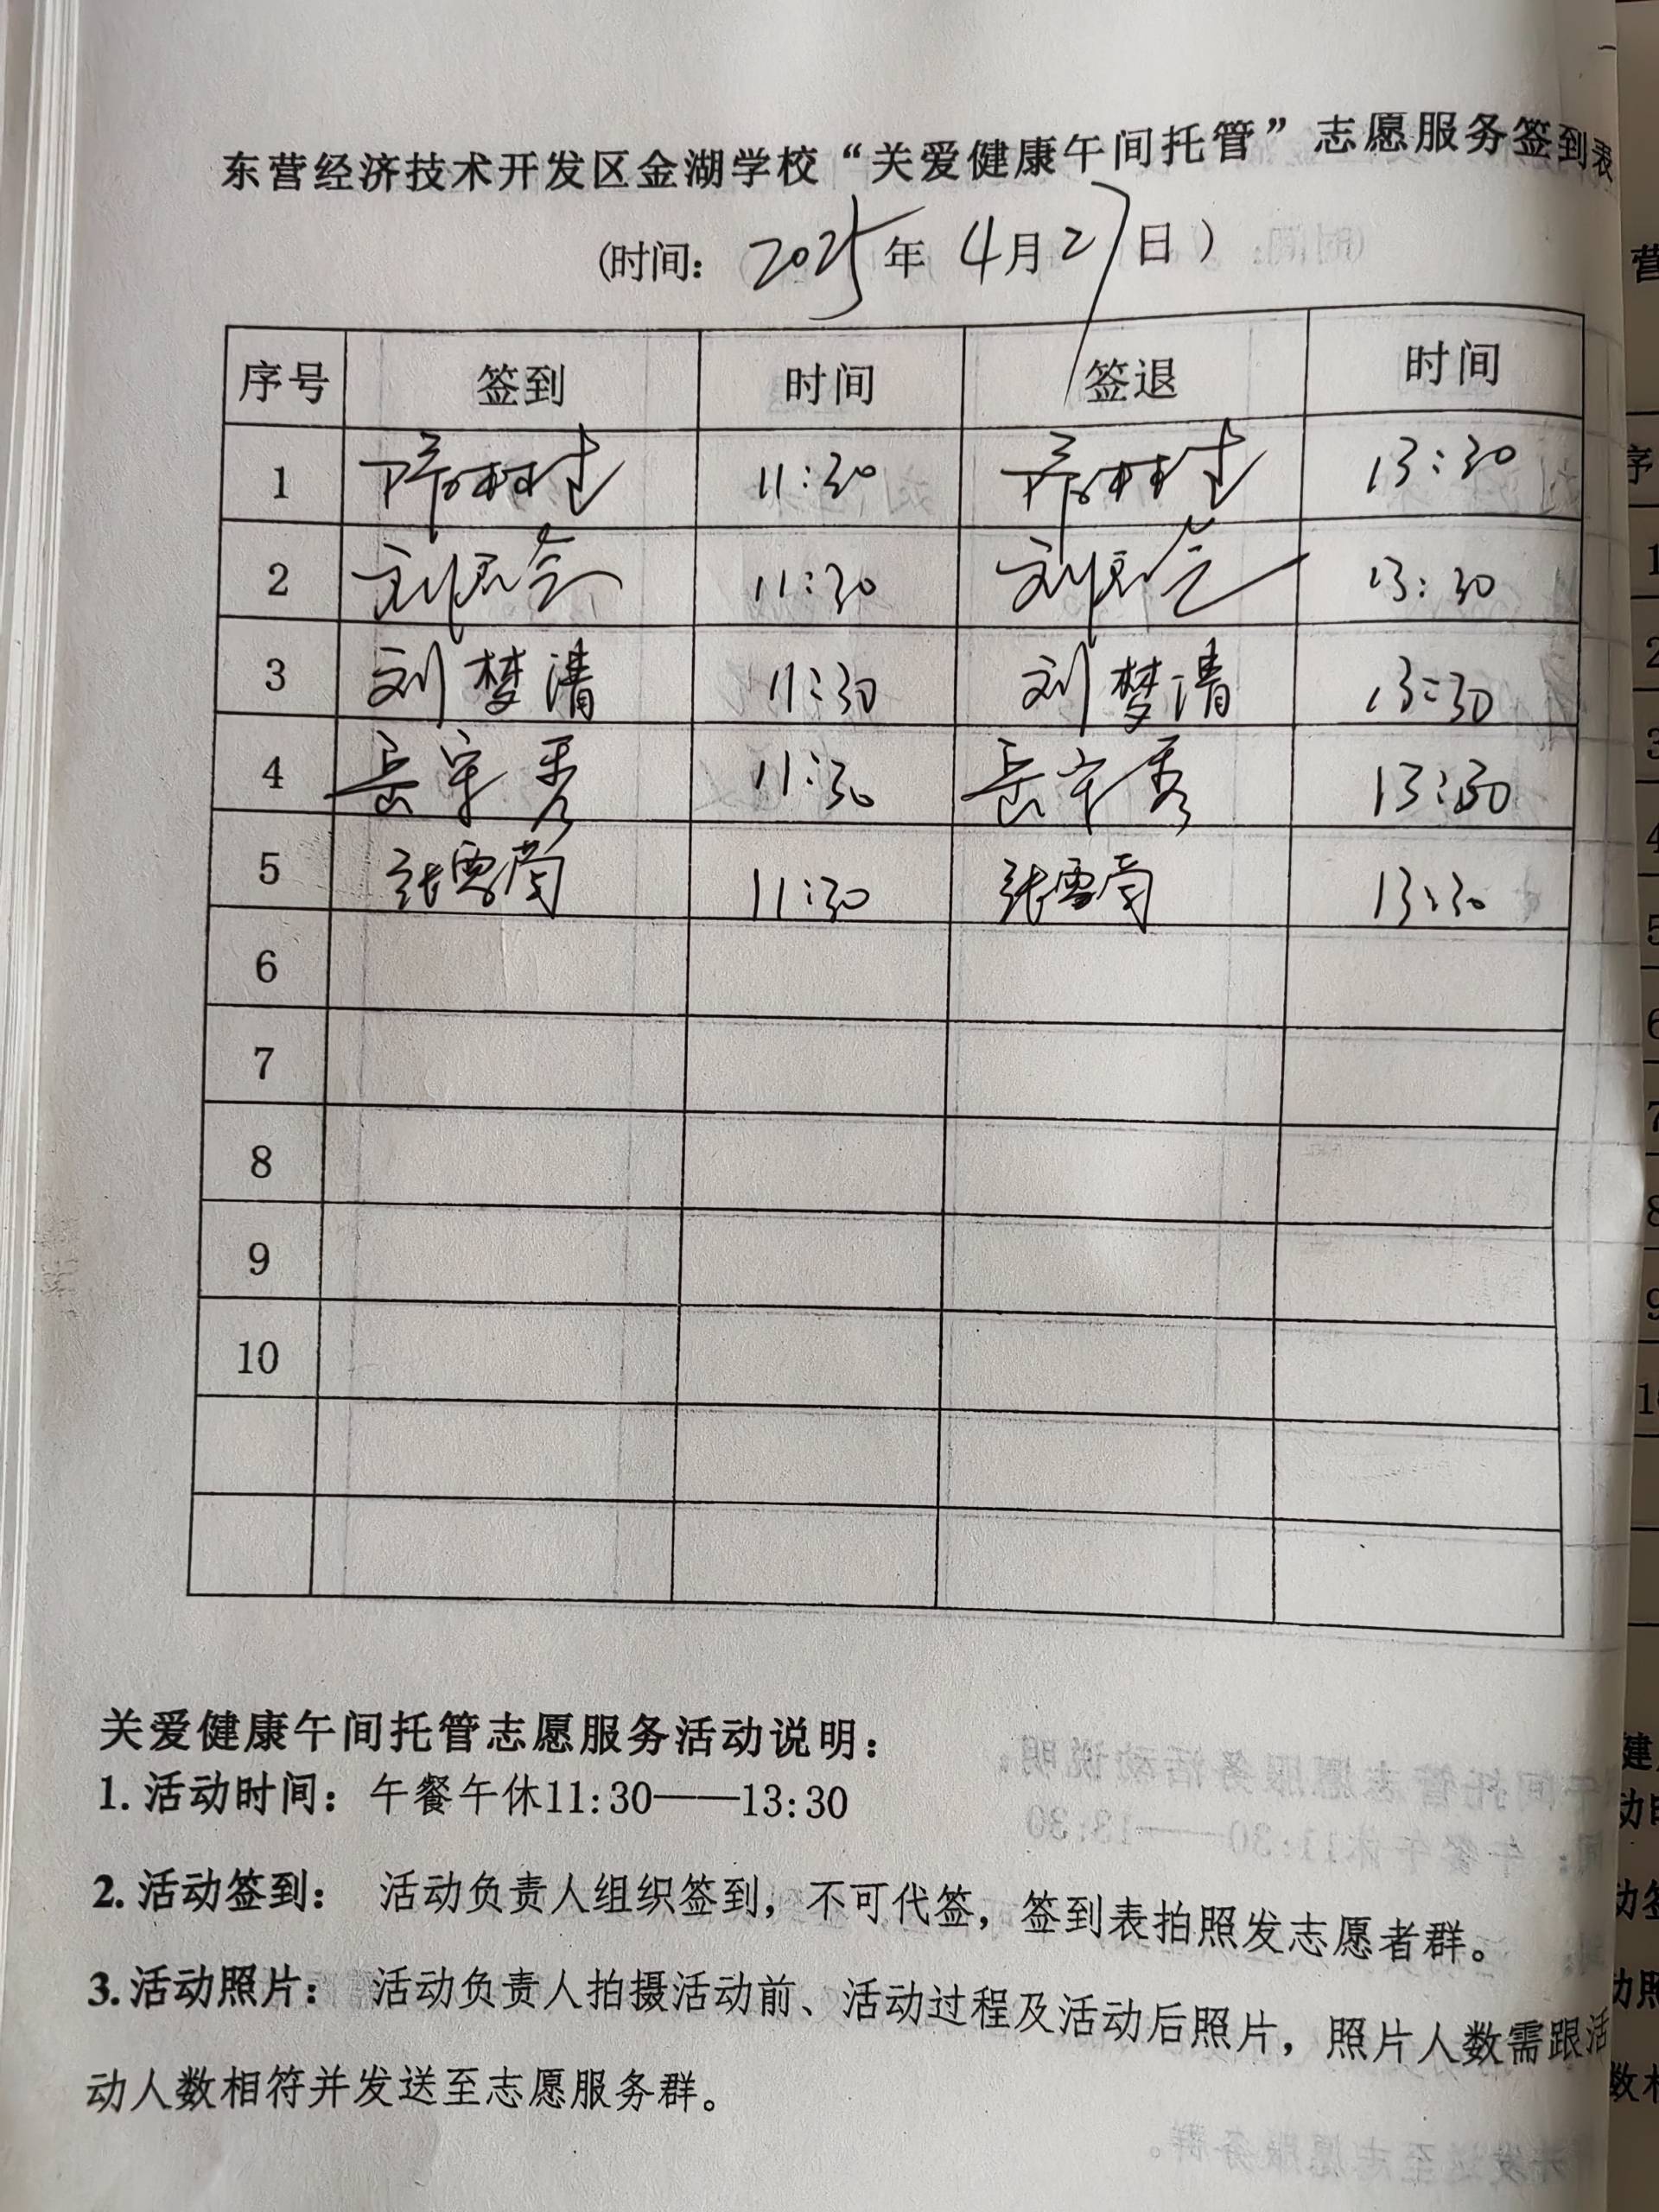 东营经济技术开发区金湖学校“关爱健康午间托管”志愿服务签到表
(时间: 2025年 4月27日)
序号 签到 时间 签退 时间
1 11:30 13:30
2 刘 11:30 刘 13:30
3 刘梦清 11:30 刘梦清 13:30
4 岳宇秀 11:30 岳宇秀 13:30
5 张雪菊 11:30 张雪菊 13:30
6
7
8
9
10
关爱健康午间托管志愿服务活动说明:
1. 活动时间: 午餐午休11:30——13:30
2. 活动签到: 活动负责人组织签到,不可代签,签到表拍照发志愿者群。
3. 活动照片: 活动负责人拍摄活动前、活动过程及活动后照片,照片人数需跟活
动人数相符并发送至志愿服务群。